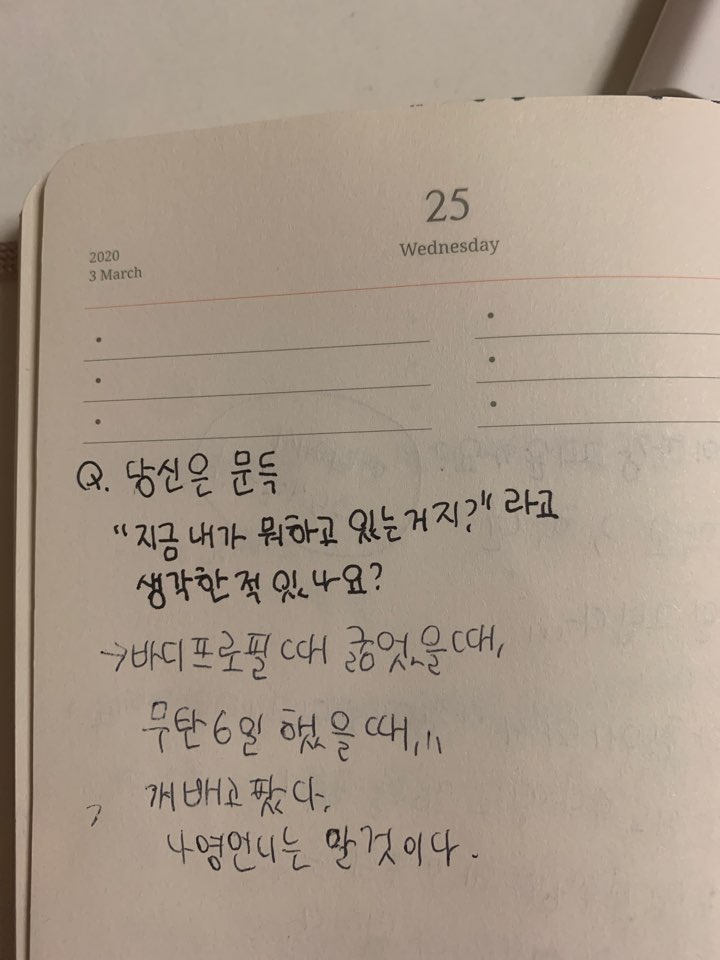 25
Wednesday
2020
3 March
Q. 당신은 문득
"지금 내가 뭐하고 있는거지?" 라고
생각한 적 있나요?
→바디프로필 때 굶었을때,
무탄 6일 했을 때,,,
개배고팠다.
나영언니는 알것이다.